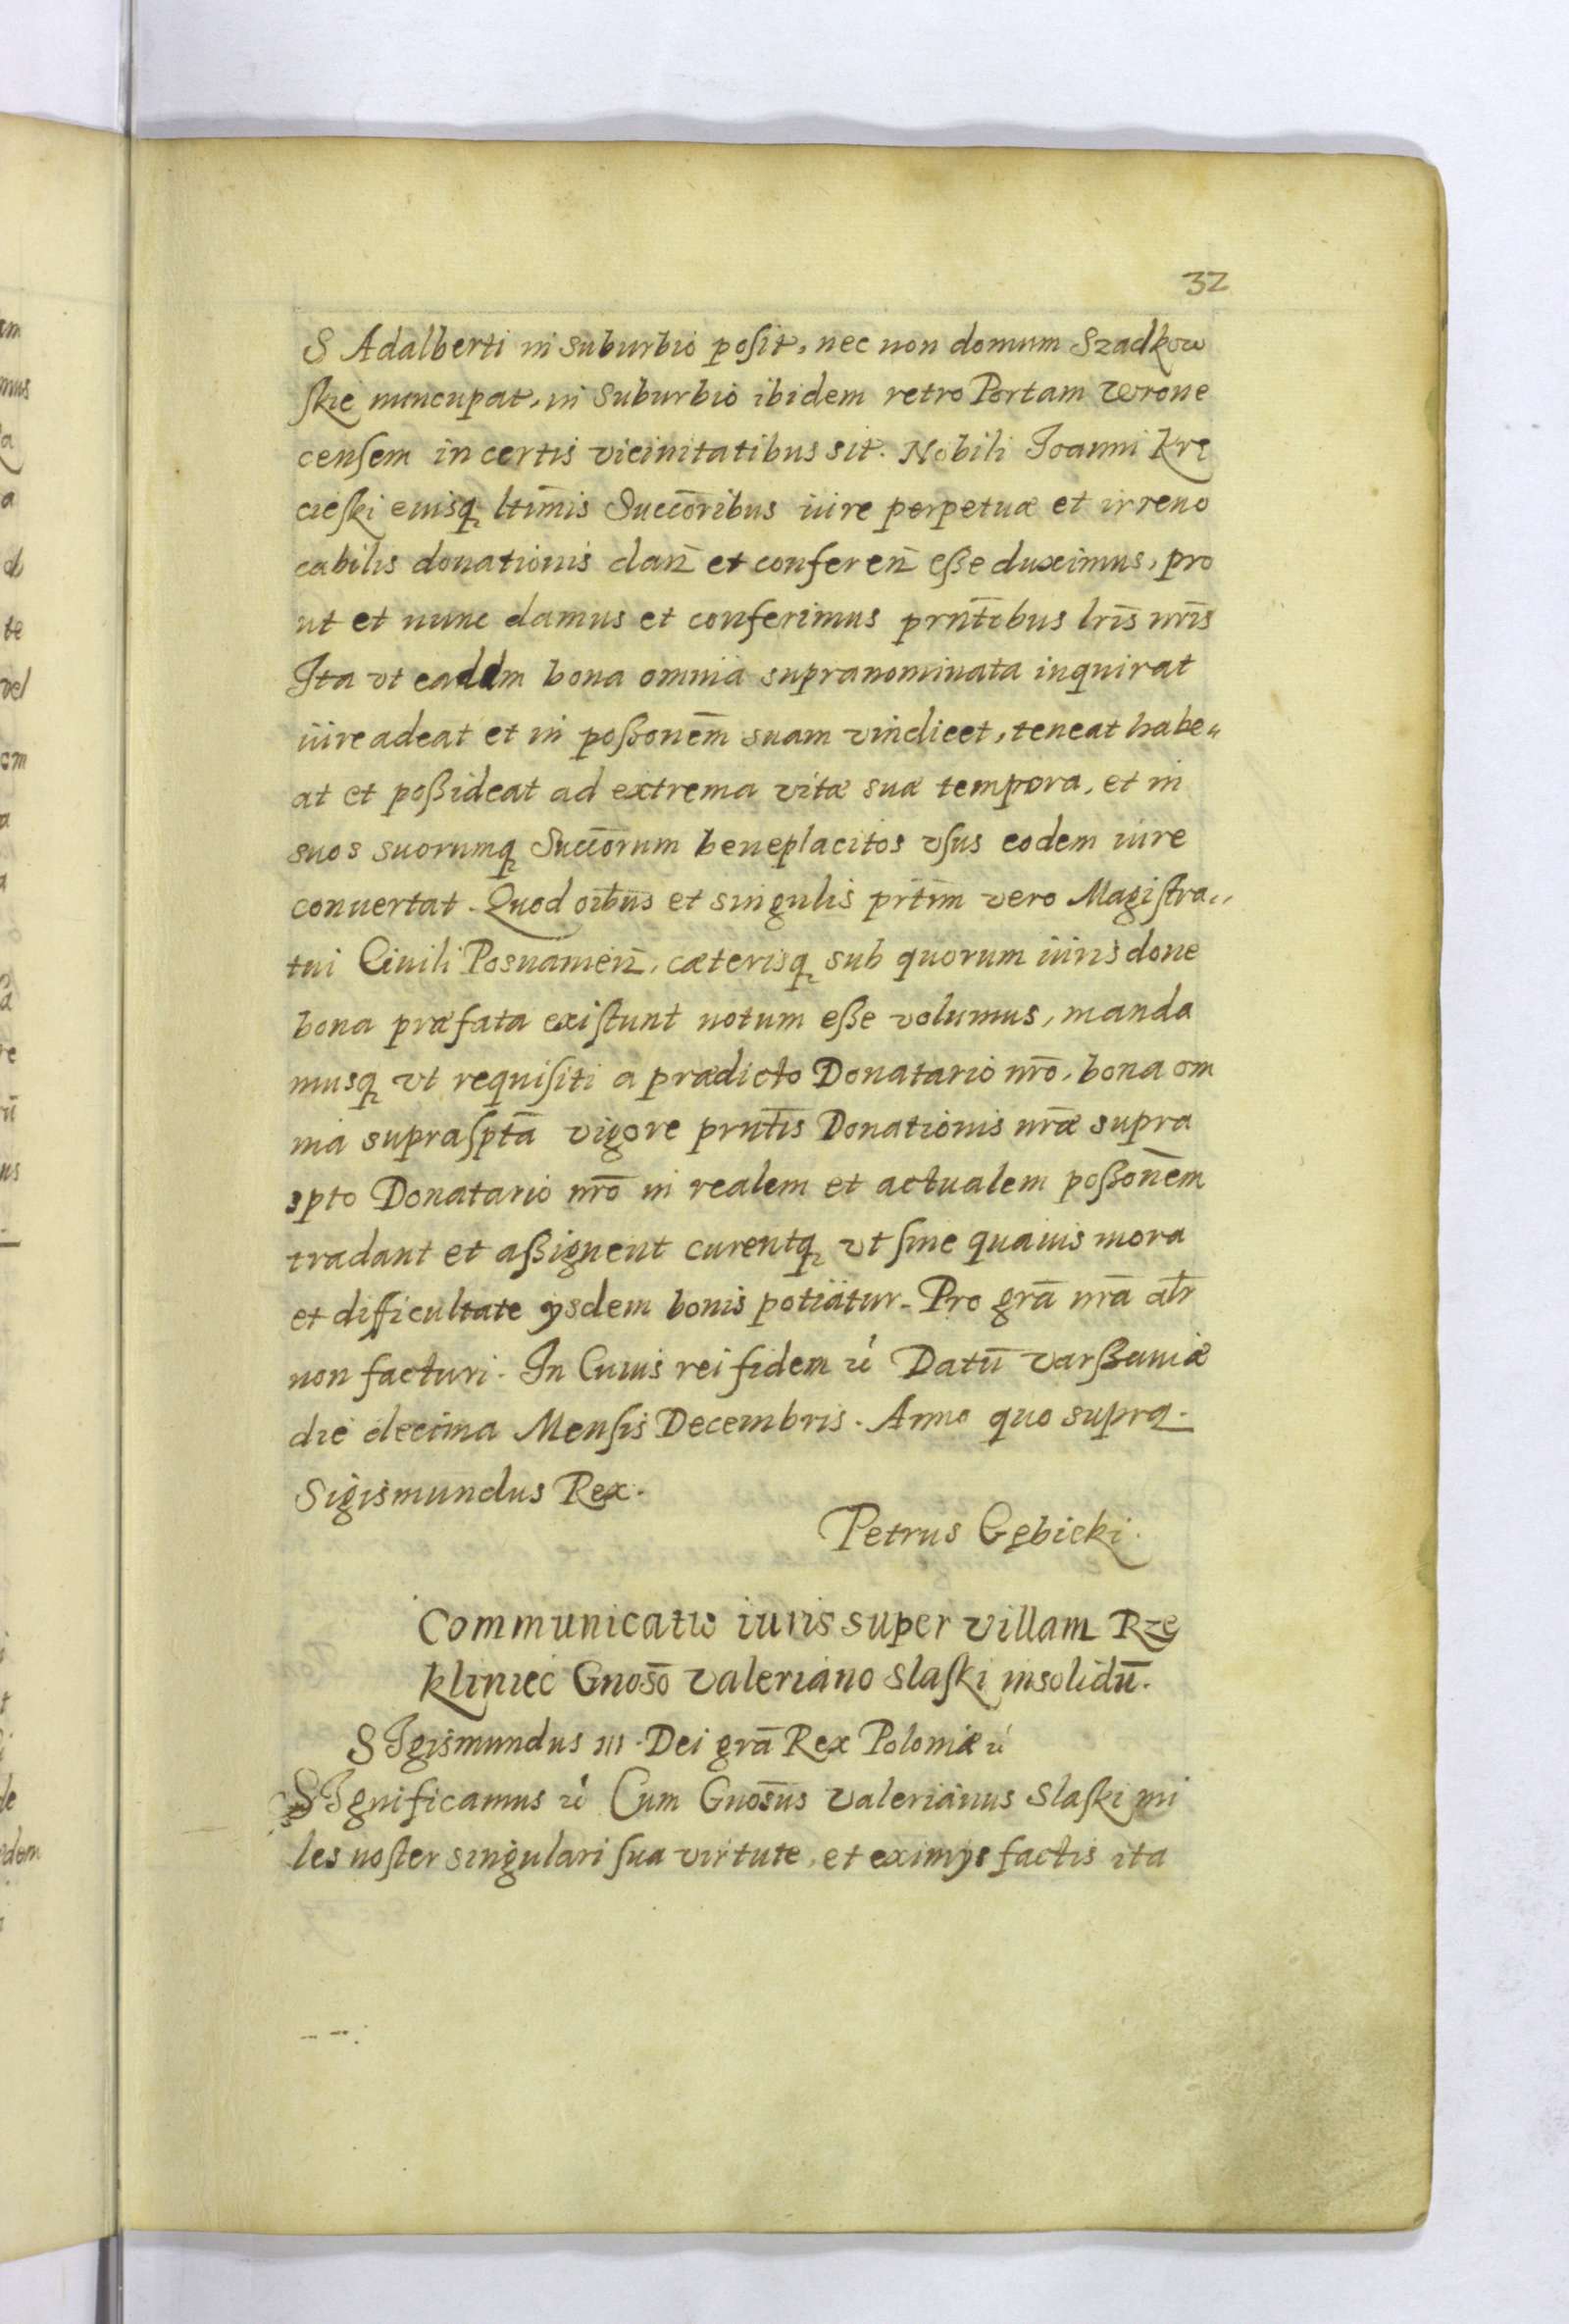 32
S Adalberti in suburbio posit, nec non domum Szadkow
skie nuncupat, in suburbio ibidem retro Portam Wrone
censem in certis vicinitatibus sit. Nobili Joanni Krę
cieski eiusq ltimis Succōribus iure perpetuæ et irreuo
cabilis donationis dan̄ et conferen̄ esse duximus, pro
ut et nunc damus et conferimus prntibus lrīs nrīs
Ita vt eaddm bona omnia supranominata inquirat
iure adeat et in poßonem̄ suam vindicet, teneat habe„
at et poßideat ad extrema vitæ suæ tempora, et in
suos suorumq Succōrum beneplacitos vsus eodem iure
conuertat. Quod oībus et singulis prtim vero Magistra„
tui Ciuili Posnanien̄, cæterisq sub quorum iurisdone
bona præfata existunt notum eße volumus, manda
musq vt requisiti a prædicto Donatario nrō, bona om
nia suprasptā vigore prntīs Donationis nrǣ supra
spto Donatario nrō in realem et actualem poßonēm
tradant et aßignent curentq vt sine quauis mora
et difficultate ysdem bonis potiatur. Pro grā nrā alr̄
non facturi. In Cuius rei fidem &c Datū Varßauiæ
die decima Mensis Decembris. Anno quo supra.
Sigismundus Rex.
Petrus Gębicki.
Communicatio iuris super villam Rze
kliniec Gnosō Valeriano Slaski insolidū.
SIgismundus III. Dei grā Rex Poloniæ &c
SIgnificamus &c Cum Gnosūs Valerianus Slaski mi
les noster singulari sua virtute, et eximys factis ita